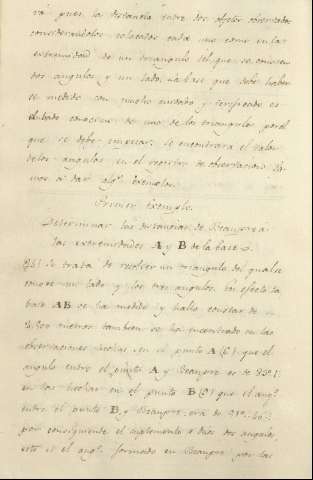 rá pues la distancia entre dos objetos observados
considerandolos colocados cada uno como en la
extremidad de un triangulo del que se conocen
dos angulos y un lado. La base que debe haber
se medido con mucho cuidado y verificado es
el lado conocido de uno de los triangulos por el
que se debe empezar: se encontrara el valor
de los angulos en el registro de observacion. Va-
mos á dar algs. exemplos.
Primer Exemplo.
Determinar las distancias de Beaupre á
las extremidades A y B de la base.
Se trata de resolver un triangulo del qual se
conoce un lado y los tres angulos. En efecto la
base AB se ha medido y halla constar de
3.500 metros tambien se ha encontrado en las
observaciones hechas en el punto A (C) que el
angulo entre el punto A y Beaupre es de
en las hechas en el punto B (C) que el angº.
entre el punto B y Beaupre era de
por consiguiente el suplemento a dhos dos angulos
esto es el angº. formado en Beaupre por las